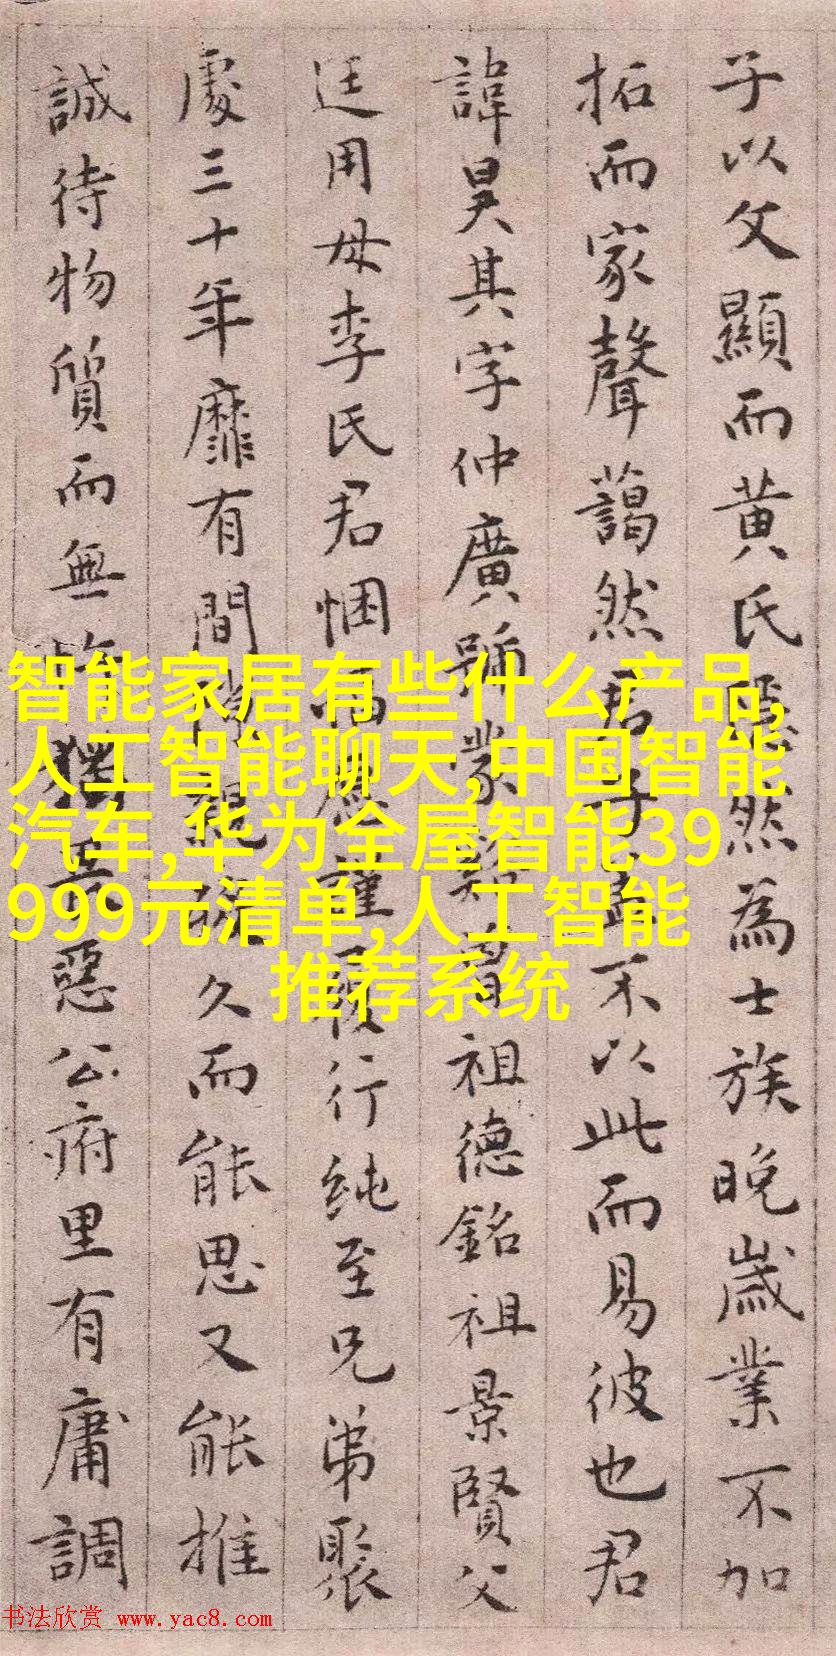 子以文顯而黄氏然為士族晚歲業不加
拓而家聲藹然君子盖不以此而易彼也君
諱昊其字仲廣號蒙祖德銘祖景賢父
廷用母李氏君悃謹行純至兄弟聚
處三十年靡有間親久而能思又能推
誠待物質而無惡公府里有庸調
智能家居有些什么产品,
人工智能聊天,中国智能
汽车,华为全屋智能39
999元清单,人工智能
推荐系统
书法欣赏 www.yac8.com